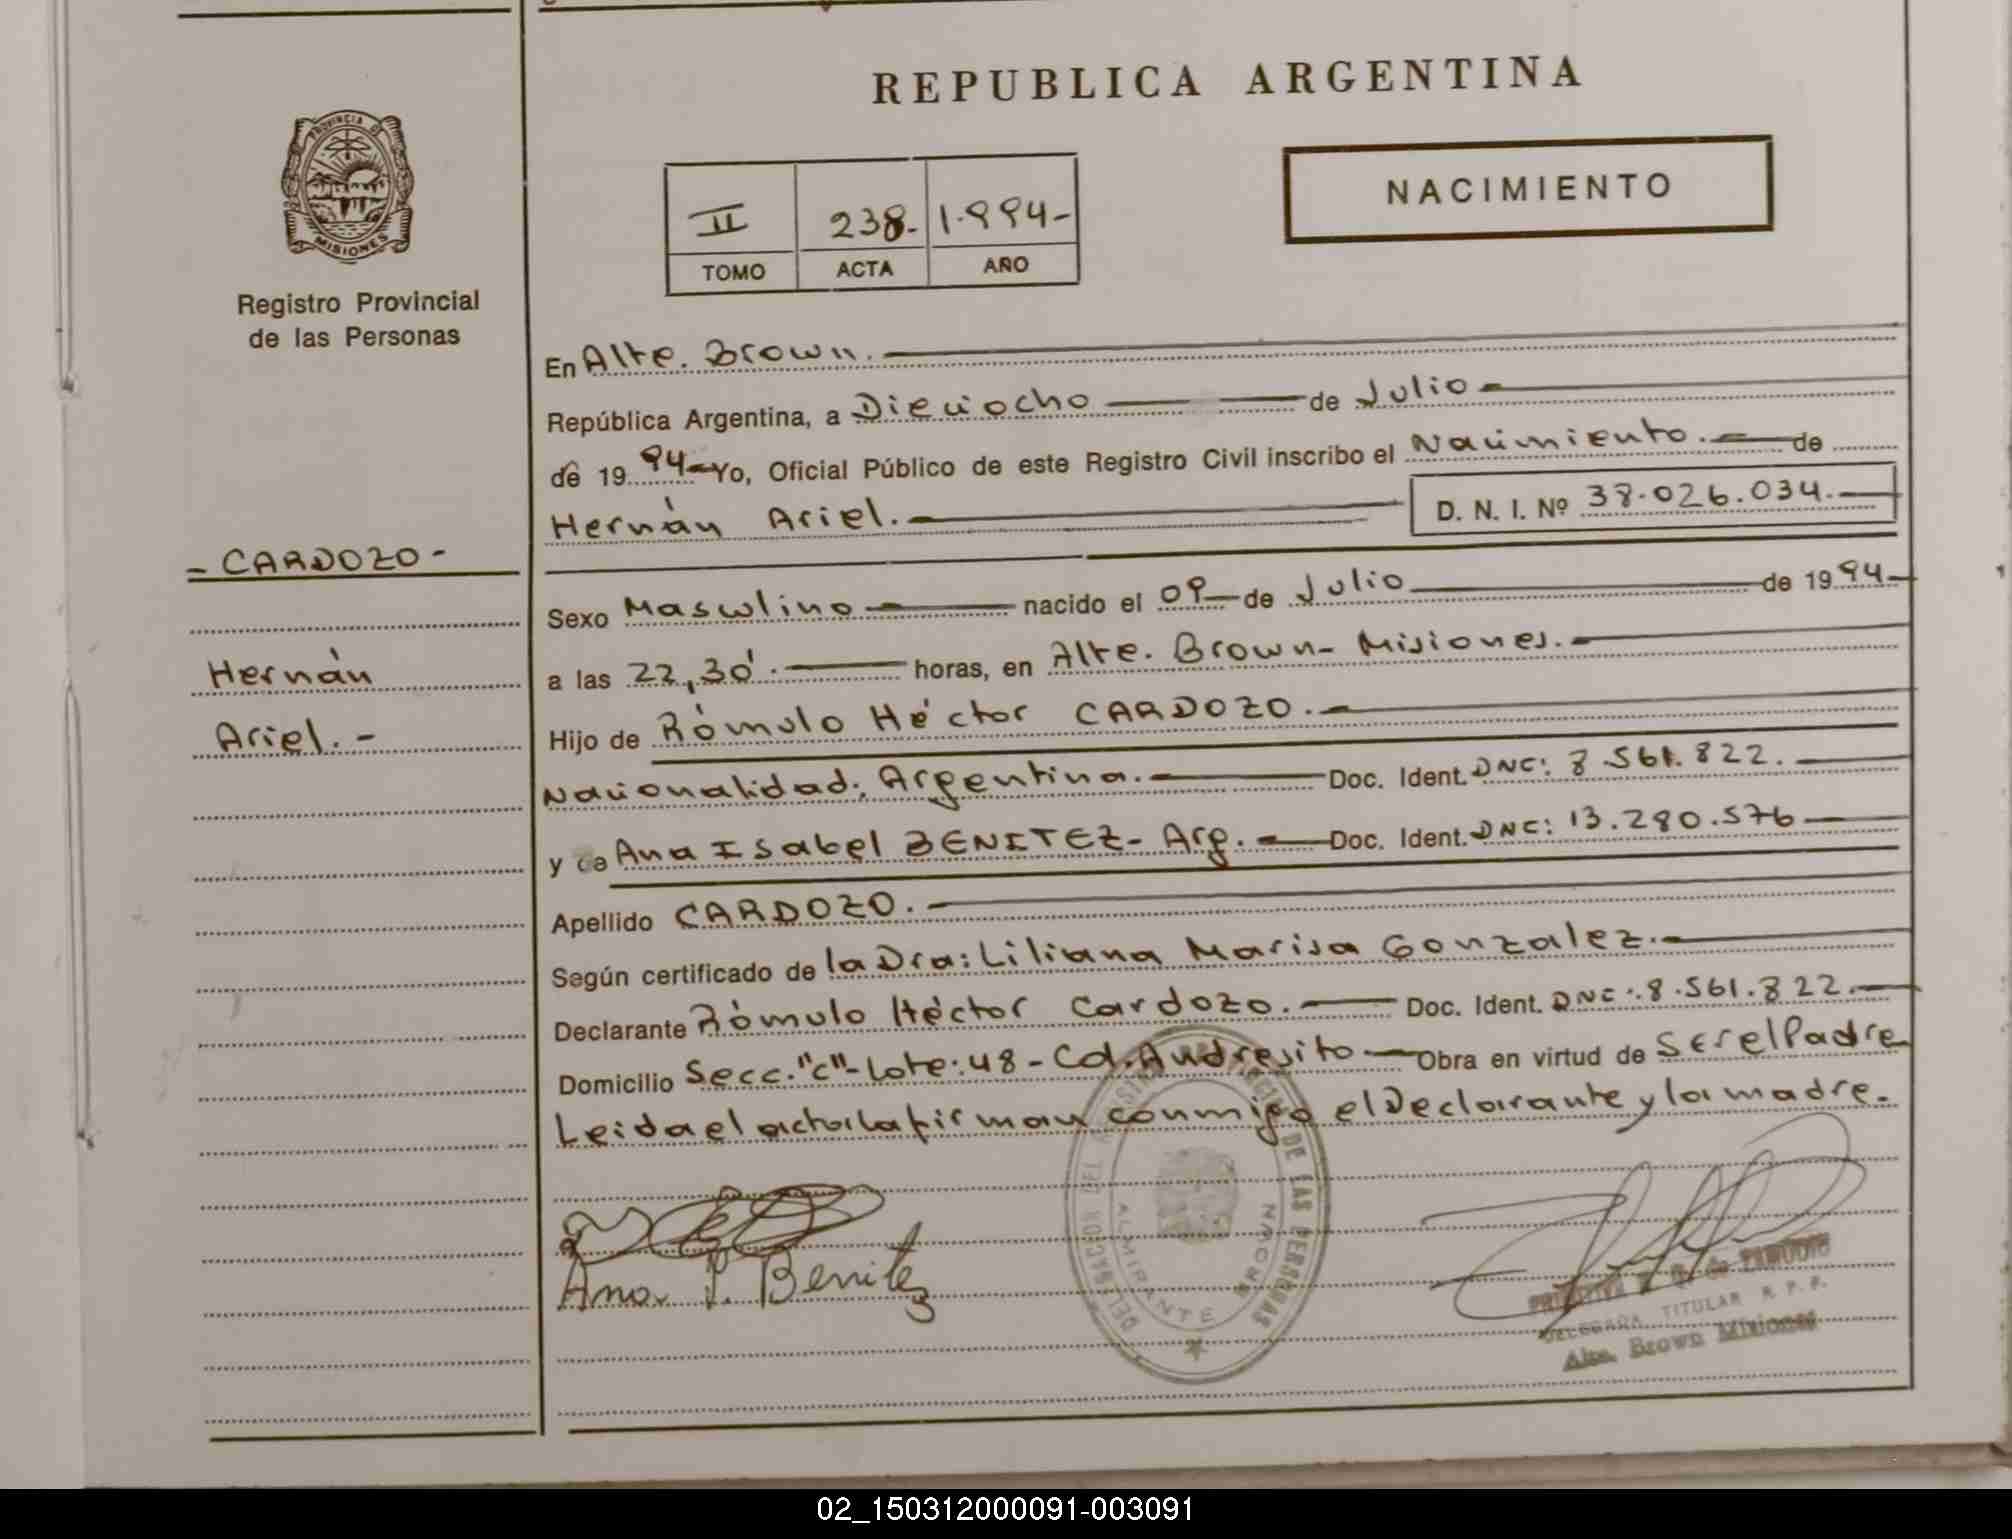 REPUBLICA ARGENTINA
PROVINCIA DE
MISIONES
Registro Provincial
de las Personas
II 238- 1.994-
TOMO ACTA AÑO
NACIMIENTO
- CARDOZO -
Hernán
Ariel.-
En Alte. Brown.
República Argentina, a Dieciocho de Julio
de 1994 Yo, Oficial Público de este Registro Civil inscribo el Nacimiento. de
Hernán Ariel. D. N. I. Nº 38.026.034.
Sexo Masculino nacido el 09 de Julio de 1994
a las 22,30'. horas, en Alte. Brown- Misiones.
Hijo de Rómulo Héctor CARDOZO.
Nacionalidad: Argentina. Doc. Ident. DNC: 8.561.822.
y de Ana Isabel BENITEZ- Arg. Doc. Ident. DNC: 13.280.576
Apellido CARDOZO.
Según certificado de la Dra: Liliana Marisa Gonzalez.
Declarante Rómulo Héctor Cardozo. Doc. Ident. DNC: 8.561.822.
Domicilio Secc. "C"- Lote: 48 - Col. Andresito Obra en virtud de Ser el Padre
Leida el acta la firman conmigo el Declarante y la madre.
Ana I. Benitez
DELEGACION DEL REGISTRO PROVINCIAL DE LAS PERSONAS
ALMIRANTE BROWN
de ZAMUDIO
DELEGADA TITULAR R. P. P.
Alte. Brown Misiones
02_150312000091-003091